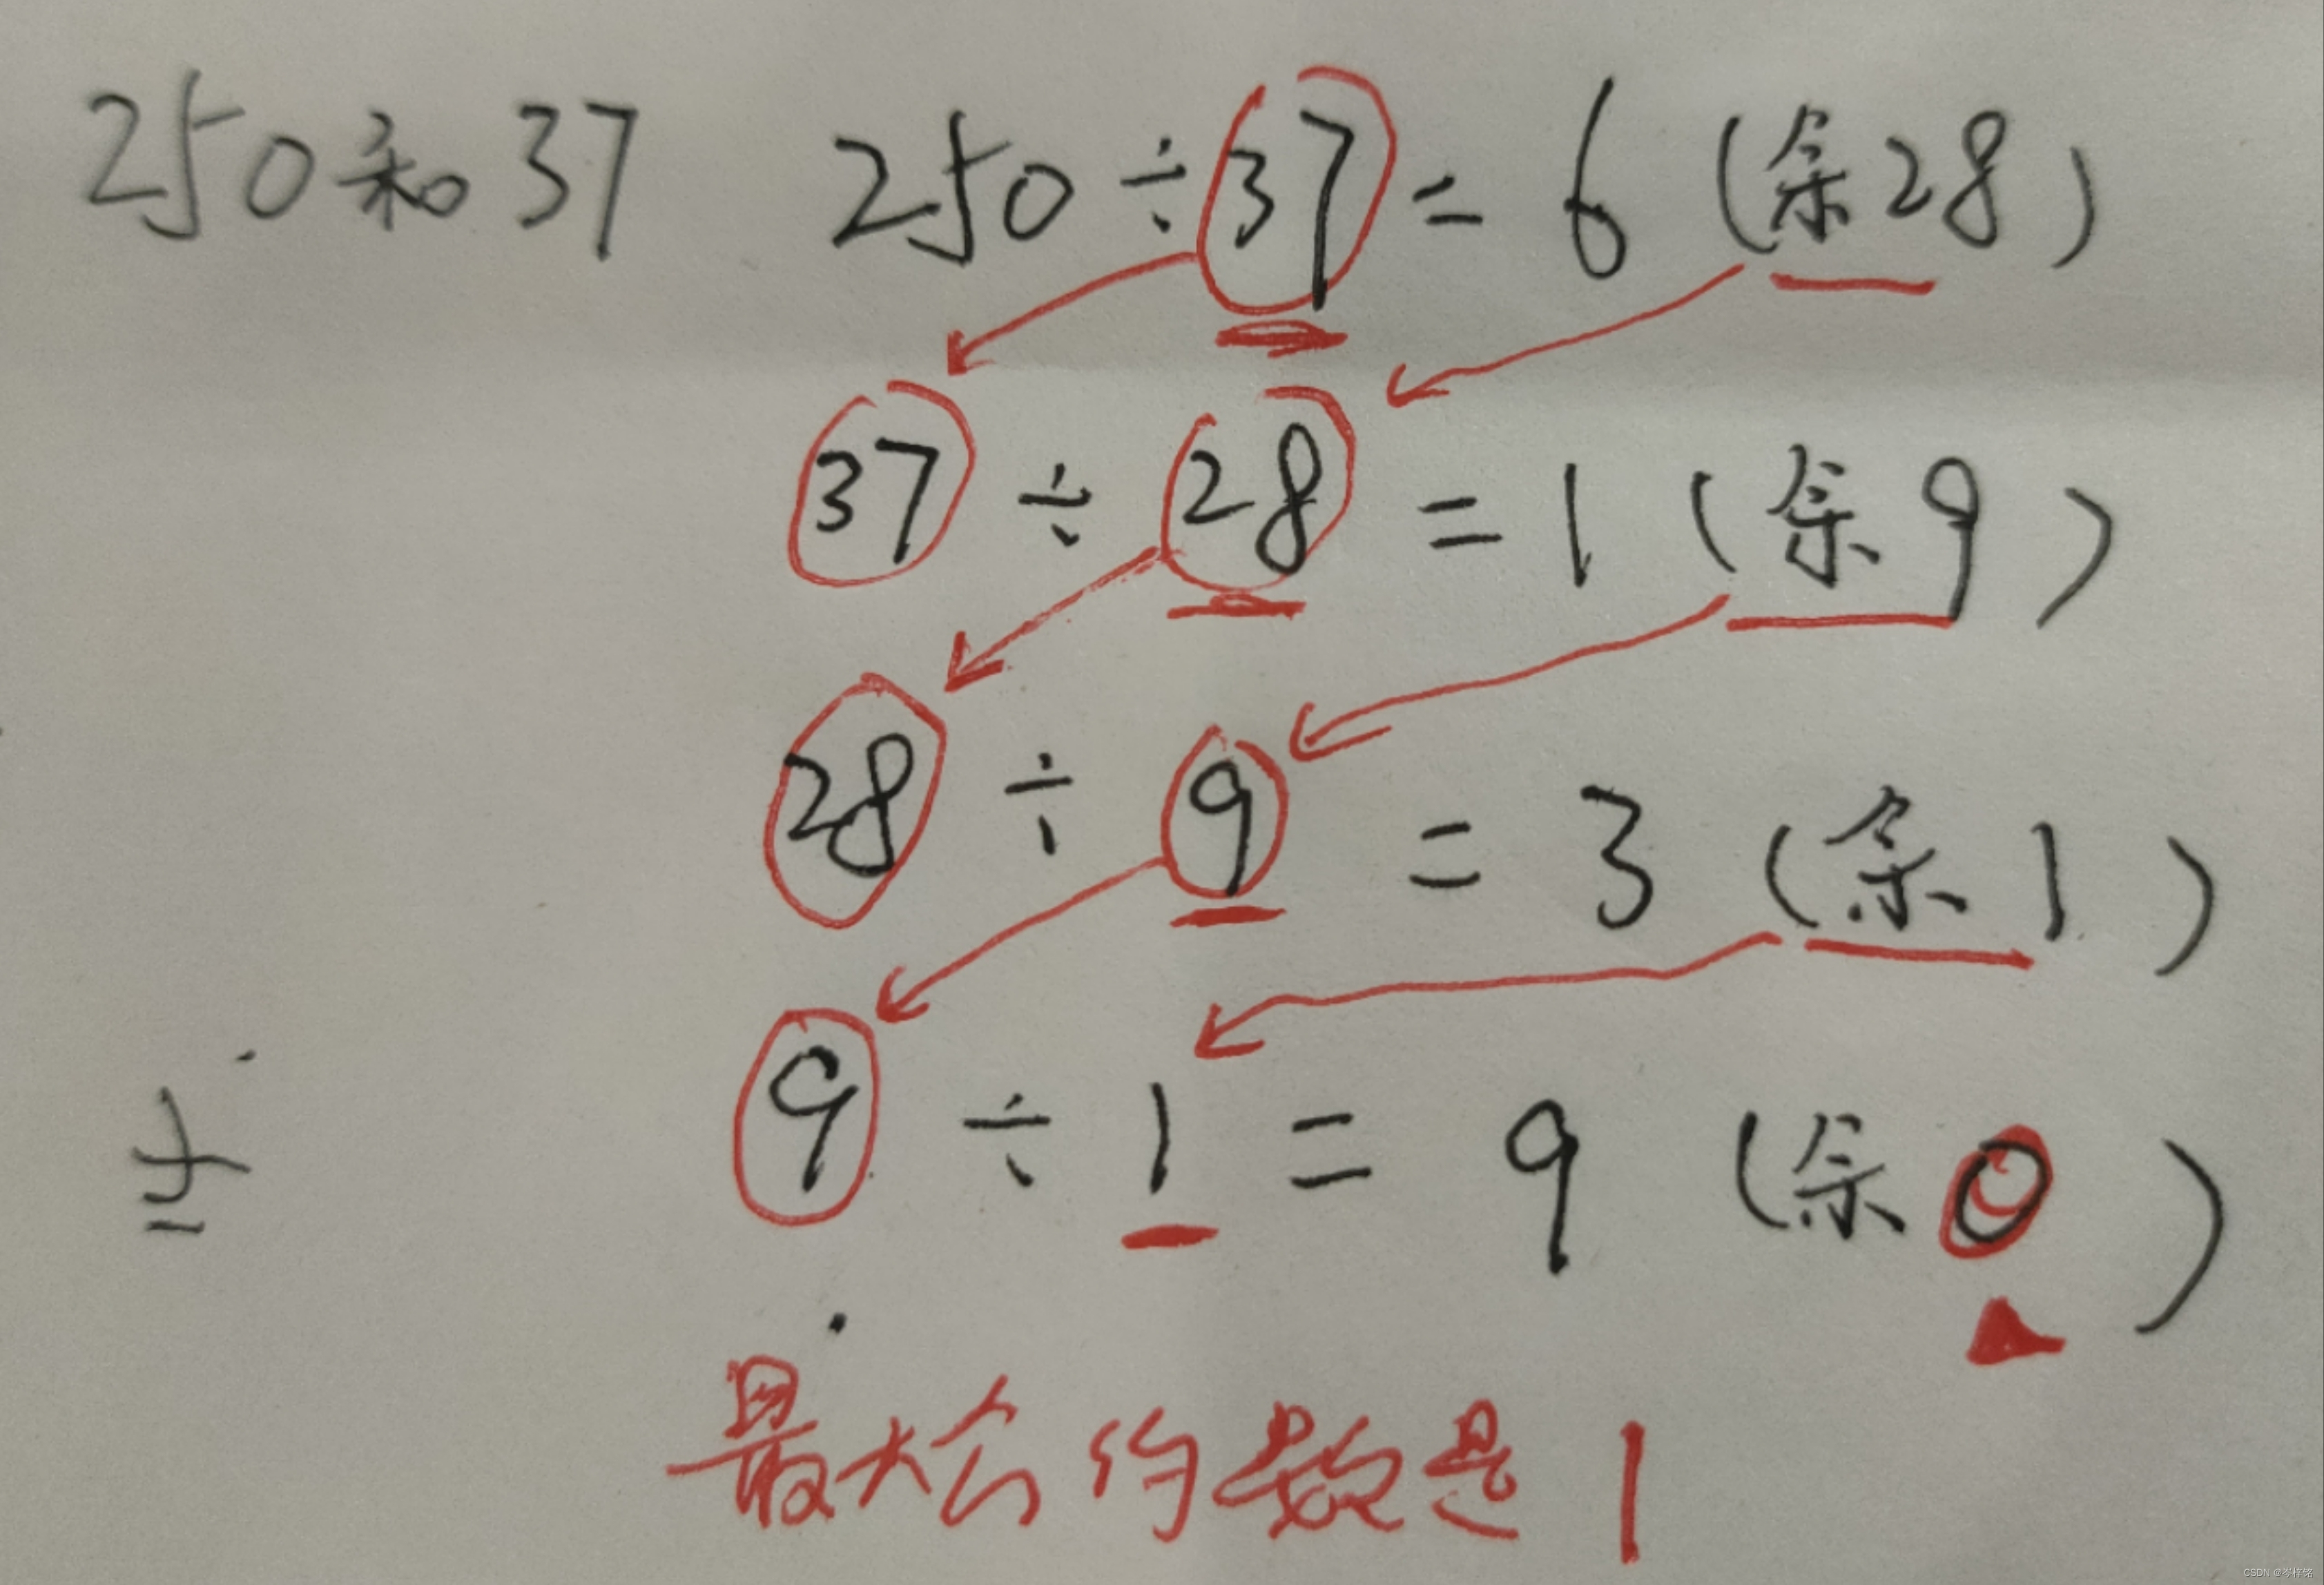 250和37 250÷37=6(余28)
37÷28=1(余9)
28÷9=3(余1)
9÷1=9(余0)
最大公约数是1
CSDN @岑梓铭